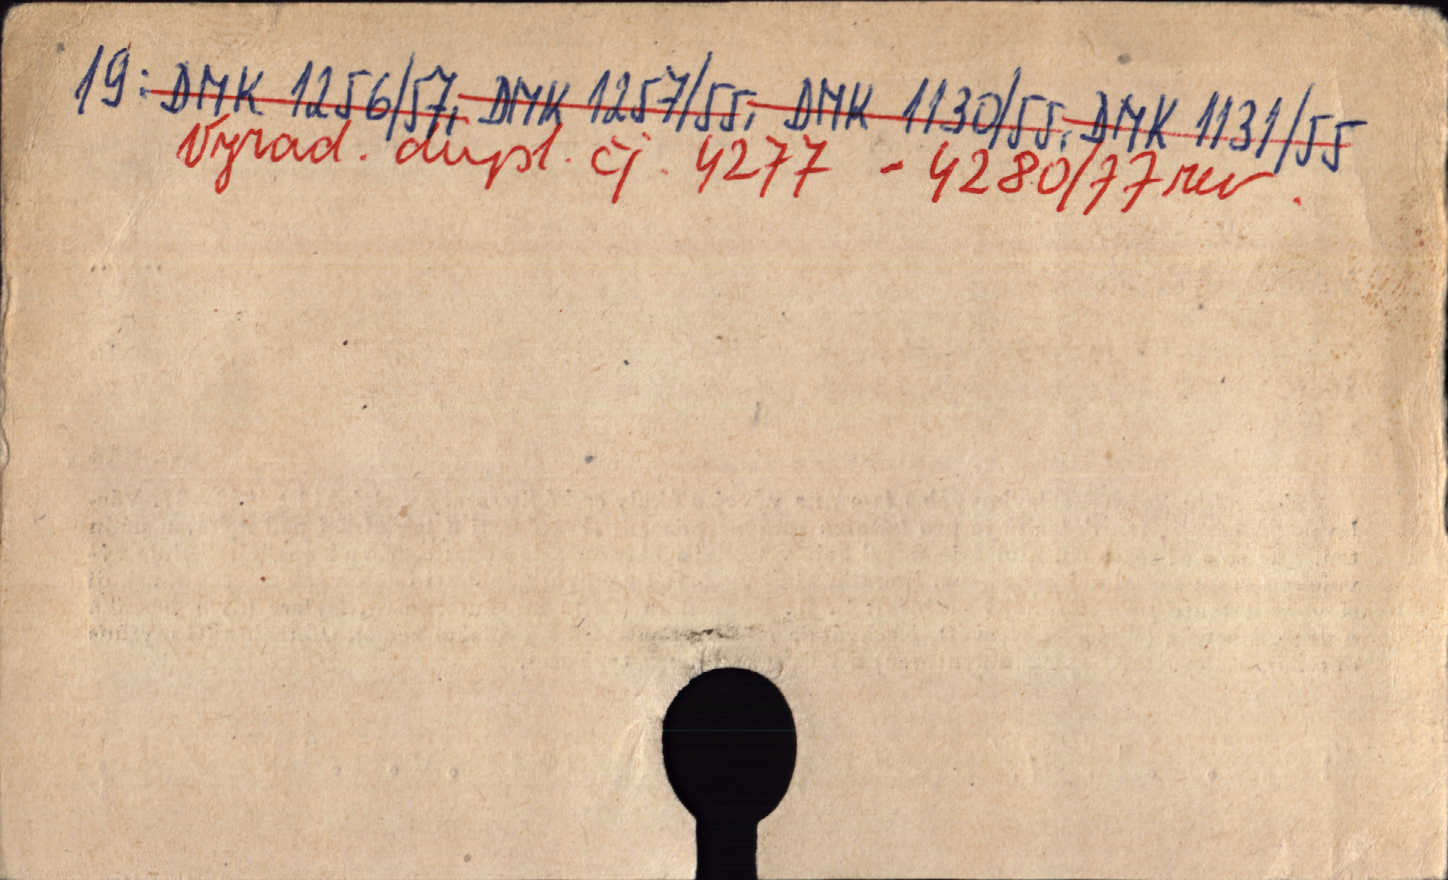 19: DMK 1256/57, DMK 1257/55, DMK 1130/55, DMK 1131/55
Vyrad. dupl. čj. 4277 - 4280/77 rev.